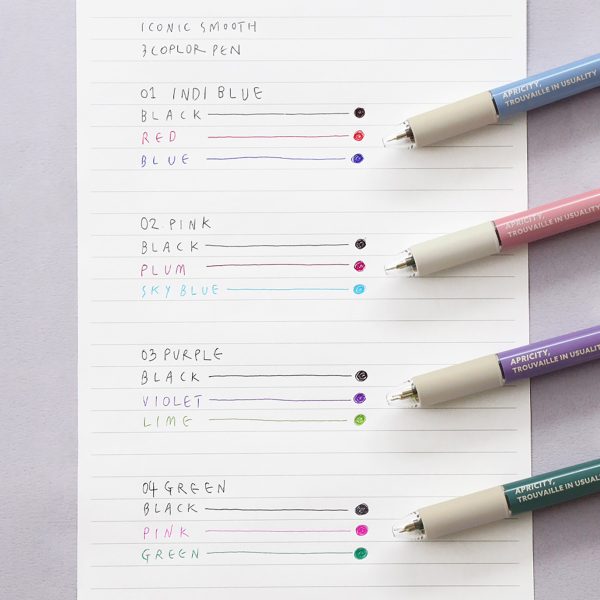 ICONIC SMOOTH
3COPLOR PEN
01 INDI BLUE
BLACK
RED
BLUE
APRICITY,
TROUVAILLE IN USUALITY
02. PINK
BLACK
PLUM
SKY BLUE
APRICITY,
TROUVAILLE IN USUALITY
03 PURPLE
BLACK
VIOLET
LIME
APRICITY,
TROUVAILLE IN USUALITY
04 GREEN
BLACK
PINK
GREEN
APRICITY,
TROUVAILLE IN USUALITY